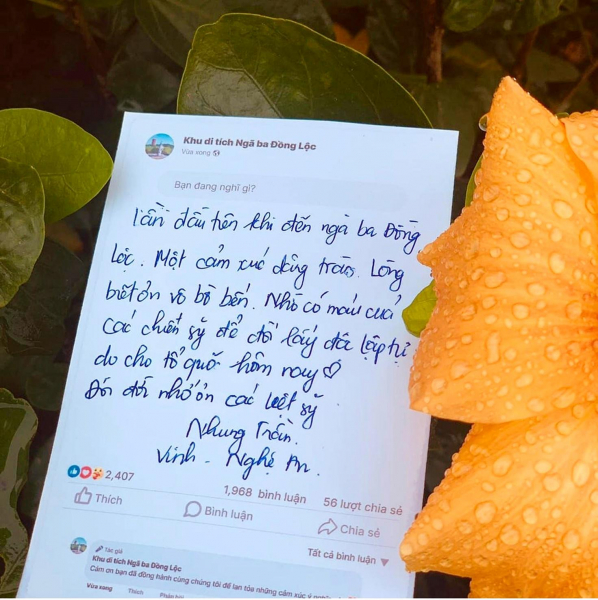 Khu di tích Ngã ba Đồng Lộc
Vừa xong
Bạn đang nghĩ gì?
lần đầu tiên khi đến ngã ba Đồng
Lộc. Một cảm xúc dâng trào. Lòng
biết ơn vô bờ bến. Nhờ có máu của
các chiến sỹ để đổi lấy độc lập tự
do cho tổ quốc hôm nay ♡
Đời đời nhớ ơn các liệt sỹ.
Nhung Trần.
Vinh - Nghệ An.
2,407
1,968 bình luận 56 lượt chia sẻ
Thích Bình luận Chia sẻ
Tất cả bình luận ▼
Tác giả
Khu di tích Ngã ba Đồng Lộc
Cảm ơn bạn đã đồng hành cùng chúng tôi để lan tỏa những cảm xúc ý
Vừa xong Thích Phản hồi